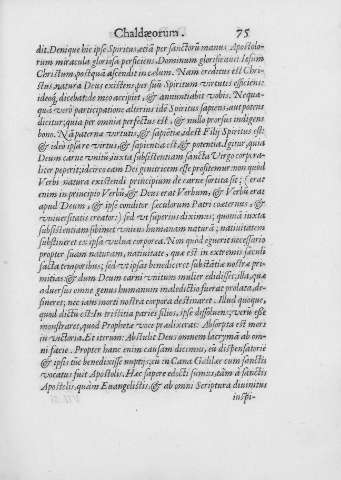 Chaldæorum. 75
dit. Denique hic ipse Spiritus, etiã per sanctorũ manus Apostolo-
rum miracula gloriosa perficiens, Dominum glorificauit Iesum
Christum, postquã ascendit in cœlum. Nam creditus est Chri-
stus, natura Deus existens, per suũ Spiritum virtutes efficiens:
ideoq́; dicebat, de meo accipiet, & annuntiabit vobis. Nequa-
quã verò participatione alterius idẽ Spiritus sapiens, aut potens
dicitur, quia per omnia perfectus est, & nullo prorsus indigens
bono. Nã paternæ virtutis, & sapiẽtiæ, idest Filij Spiritus est:
& ideò ipsa re virtus, & sapientia est, & potencia. Igitur, quia
Deum carne vnitũ iuxta subsistentiam sancta Virgo corpora-
liter peperit, idcirco eam Dei genitricem esse profitemur non quod
Verbi natura existendi principium de carne sortita sit; (erat
enim in principio Verbũ & Deus erat Verbum, & Verbũ erat
apud Deum, & ipse conditor sæculorum Patri coæternus, &
vniuersitatis creator:) sed vt superius diximus; quoniã iuxta
subsistentiam sibimet vniens humanam naturã; natiuitatem
sustinuerit ex ipsa vulua corporea. Non quòd eguerit necessario
propter suam naturam, natiuitate, quæ est in extremis sæculi
facta temporibus; sed vt ipsas benediceret substãtiæ nostræ pri-
mitias; & dum Deum carni vnitum mulier edidisset; illa, quæ
aduersus omne genus humanum maledictio fuerat prolata, de-
sineret; nec iam morti nostra corpora destinaret. Illud quoque,
quod dictũ est: In tristitia paries filios, ipse dissoluens, verũ esse
monstraret, quod Prophetæ voce prædixerat: Absorpta est mors
in victoria. Et iterum: Abstulit Deus omnem lacrymã ab om-
ni facie. Propter hanc enim causam dicimus, eũ dispensatoriè
& ipsis tũc benedixisse nuptijs, cũ in Cana Galileæ cum sanctis
vocatus fuit Apostolis. Hæc sapere edocti sumus, tàm à sãctis
Apostolis, quàm Euangelistis, & ab omni Scriptura diuinitus
inspi-